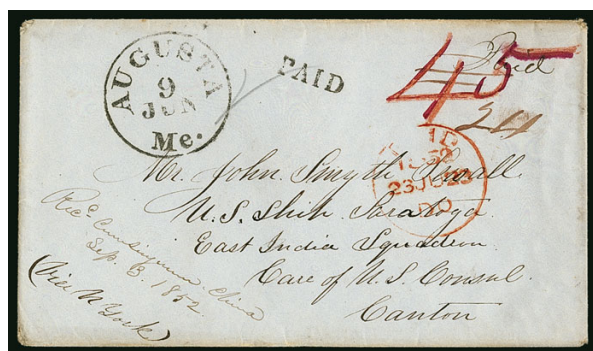 AUGUSTA
9
JUN
Me.
PAID
Paid
45
24
PAID
1852
23 JU 23
Mr. John Smyth Sewall
U.S. Ship Saratoga
East India Squadron
Care of U.S. Consul
Canton
Recd. Cumsingmun. China
Sep. 13. 1852.
(Via N York)